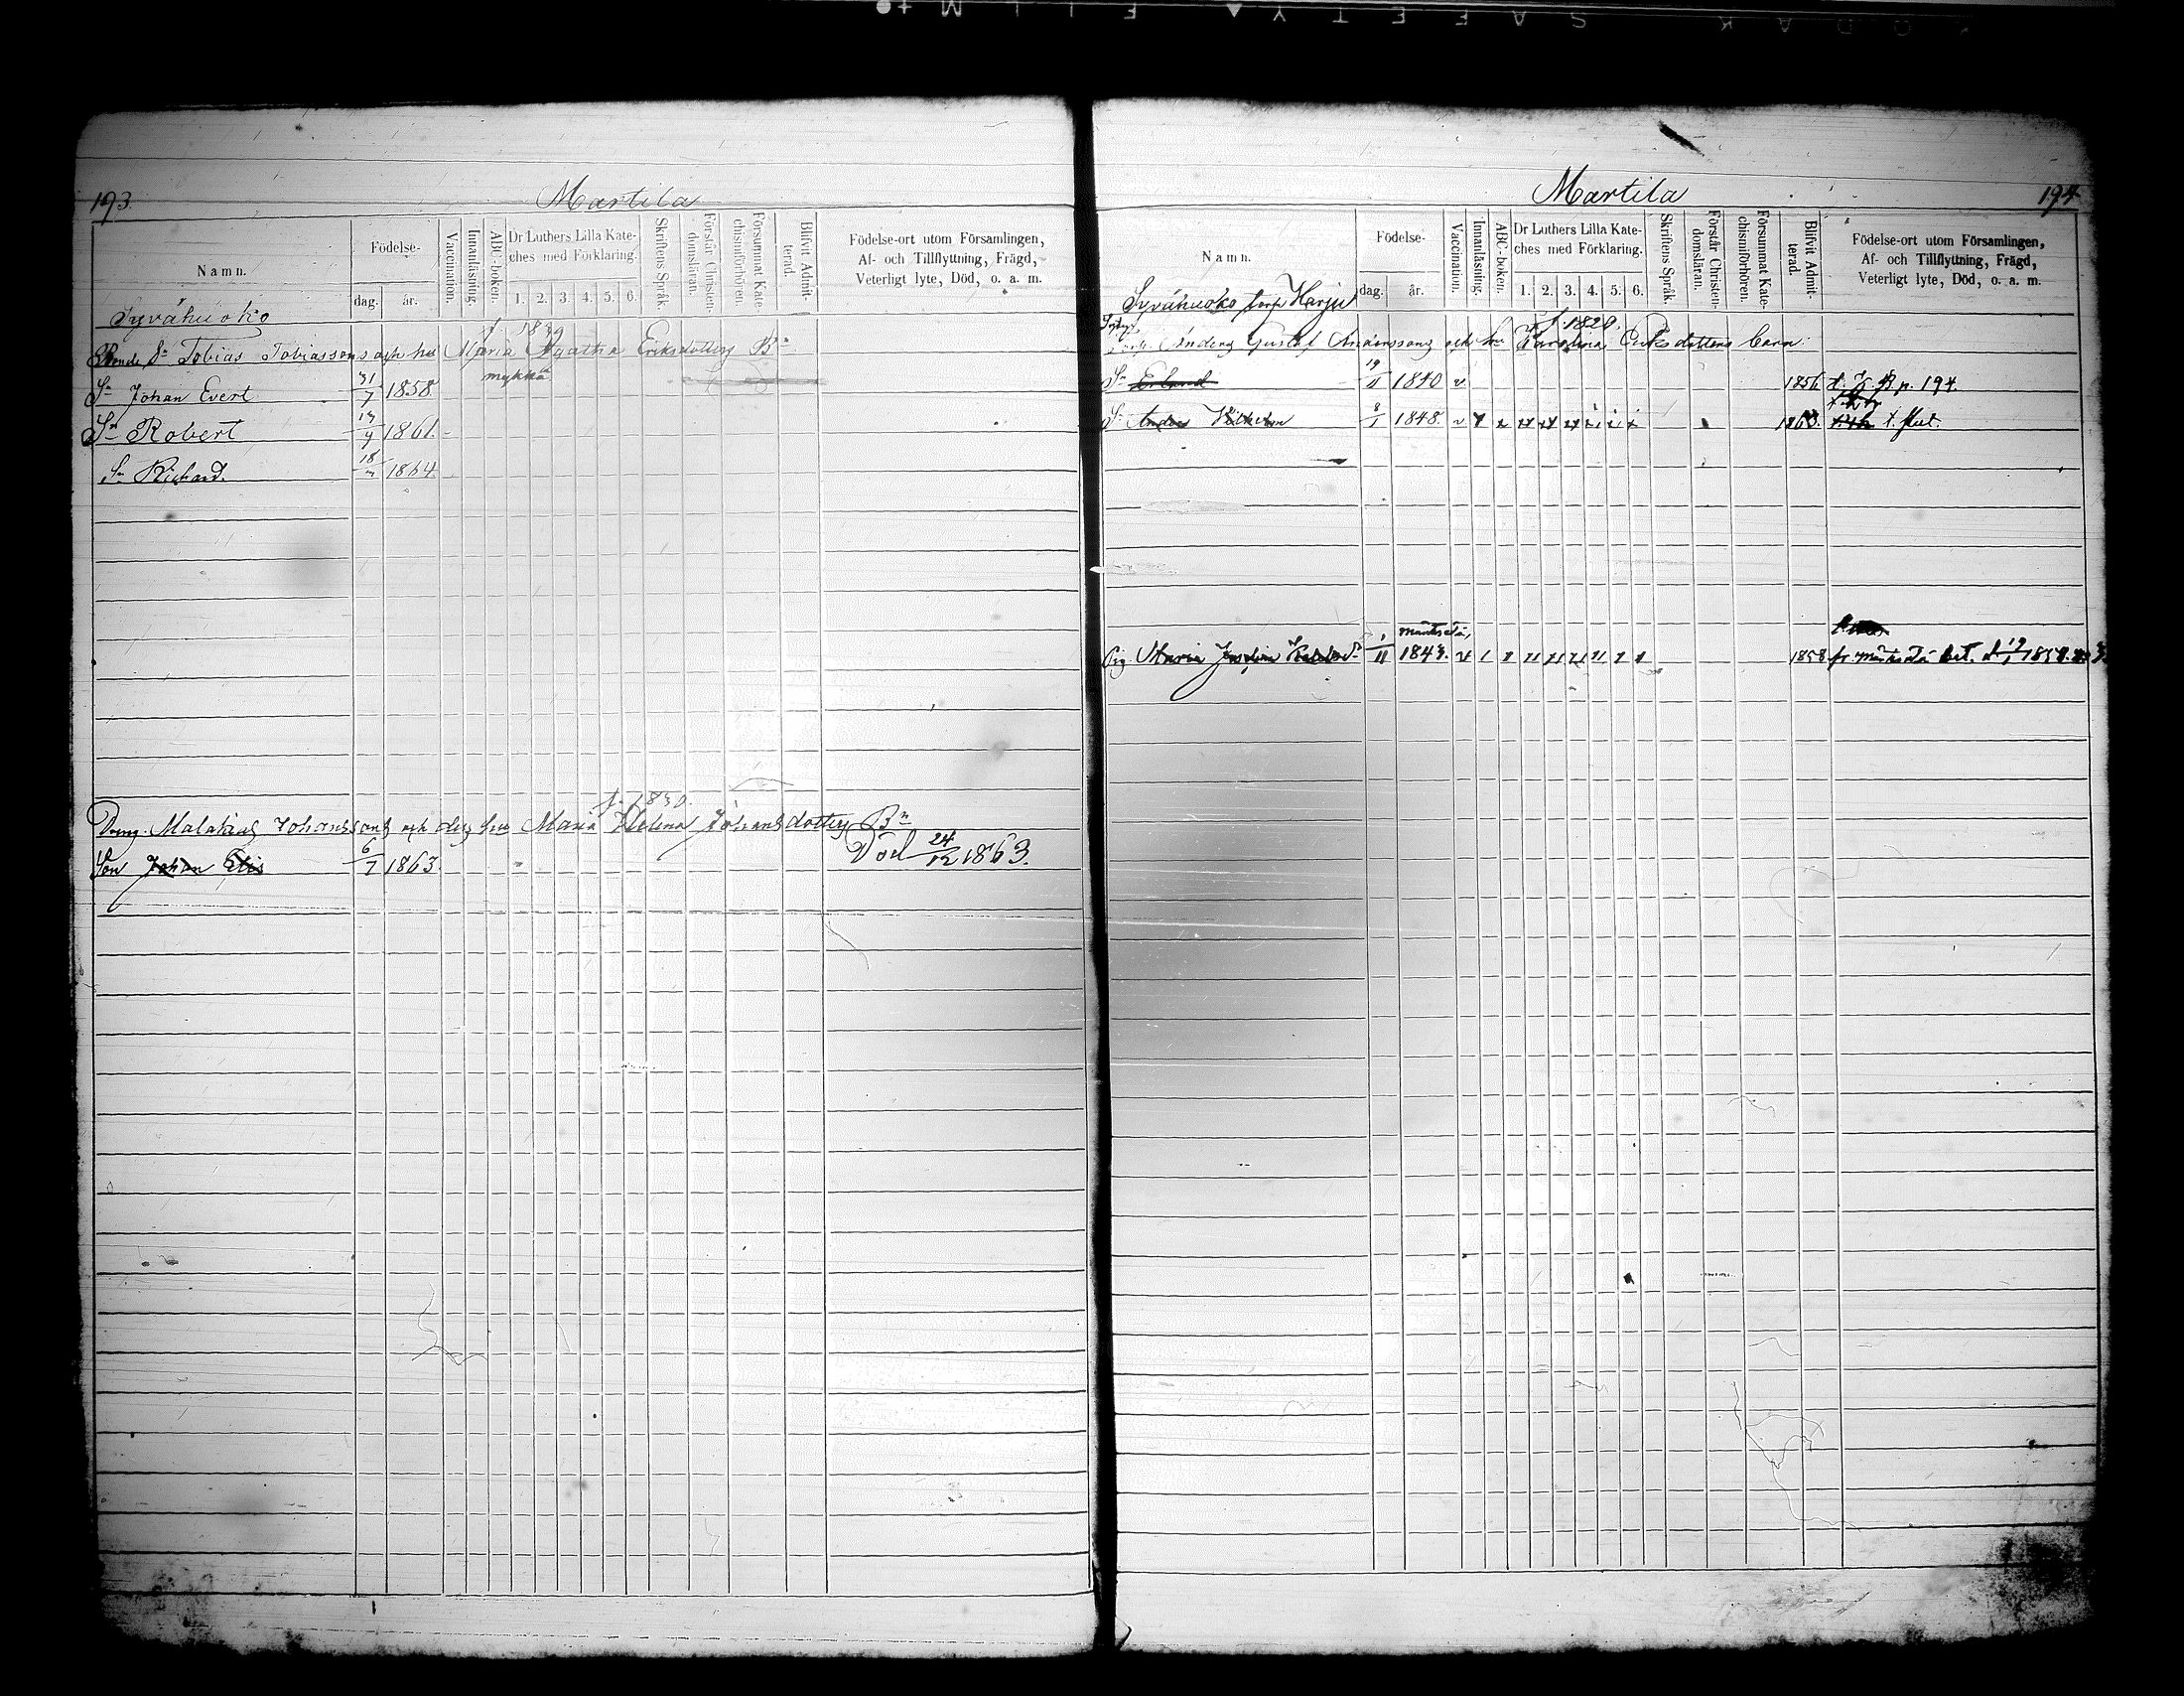 193.
Martila
Namn.
Födelse-
dag.
år.
Vaccination.
Innanläsning.
ABC-boken.
Dr Luthers Lilla Kate-
ches med Förklaring.
1. 2. 3. 4. 5. 6.
Skriftens Språk.
Förstår Christen-
domsläran.
Försummat Kate-
chismiförhören.
Blifvit Admit-
terad.
Födelse-ort utom Församlingen,
Af- och Tillflyttning, Frägd,
Veterligt lyte, Död, o. a. m.
Syvähuoko
f. 1839
Bonde Sn Tobias Tobiassons och hu Maria Agatha Eriksdotters Bn
mykkä
Sn Johan Evert 31/7 1858.
Sn Robert 1861.
Sn Richard. 18 1864.
f. 1830.
Dräng Malakias Johanssons och des hu Maria Helena Johansdotters Bn
Son Johan Elis 6/7 1863. Död 24/12 1863.
Martila
194
Namn.
Födelse-
dag.
år.
Vaccination.
Innanläsning.
ABC-boken.
Dr Luthers Lilla Kate-
ches med Förklaring.
1. 2. 3. 4. 5. 6.
Skriftens Språk.
Förstår Christen-
domsläran.
Försummat Kate-
chismiförhören.
Blifvit Admit-
terad.
Födelse-ort utom Församlingen,
Af- och Tillflyttning, Frägd,
Veterligt lyte, Död, o. a. m.
Syvähuoko torp Harju
f. 1820.
Anders Gustaf Anderssons och hu Karolina Eriksdotters barn
Sn Erland 19/11 1840 v 1856 p. 194.
Sn Anders Wilhelm 8/1 1848. v 1863.
Mäntsälä,
Pig Maria Josefina 1/11 1843. 1858 fr. Mäntsälä bet. d.